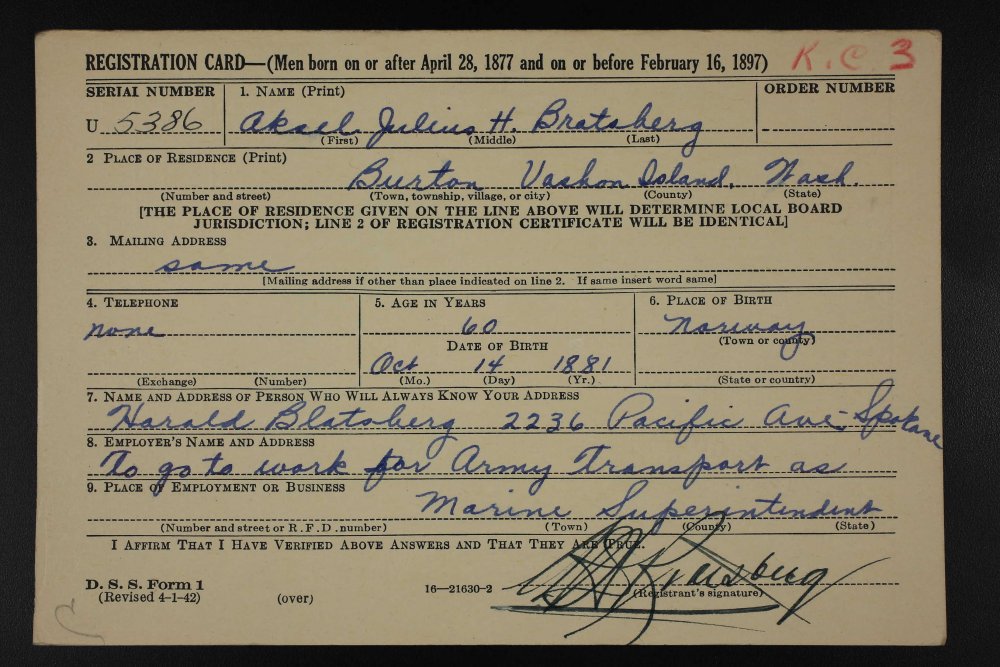 REGISTRATION CARD—(Men born on or after April 28, 1877 and on or before February 16, 1897) K.C. 3
SERIAL NUMBER 1. NAME (Print) ORDER NUMBER
U 5386 Aksel Julius H. Bratsberg
(First) (Middle) (Last)
2 PLACE OF RESIDENCE (Print)
Burton Vashon Island, Wash.
(Number and street) (Town, township, village, or city) (County) (State)
[THE PLACE OF RESIDENCE GIVEN ON THE LINE ABOVE WILL DETERMINE LOCAL BOARD
JURISDICTION; LINE 2 OF REGISTRATION CERTIFICATE WILL BE IDENTICAL]
3. MAILING ADDRESS
same
[Mailing address if other than place indicated on line 2. If same insert word same]
4. TELEPHONE 5. AGE IN YEARS 6. PLACE OF BIRTH
none 60 Norway
DATE OF BIRTH (Town or county)
Oct 14 1881
(Exchange) (Number) (Mo.) (Day) (Yr.) (State or country)
7. NAME AND ADDRESS OF PERSON WHO WILL ALWAYS KNOW YOUR ADDRESS
Harald Blatsberg 2236 Pacific Ave- Spokane
8. EMPLOYER'S NAME AND ADDRESS
To go to work for Army Transport as
9. PLACE OF EMPLOYMENT OR BUSINESS
Marine Superintendent
(Number and street or R.F.D. number) (Town) (County) (State)
I AFFIRM THAT I HAVE VERIFIED ABOVE ANSWERS AND THAT THEY ARE TRUE.
D. S. S. Form 1
(Revised 4-1-42) (over) 16—21630-2 (Registrant's signature)